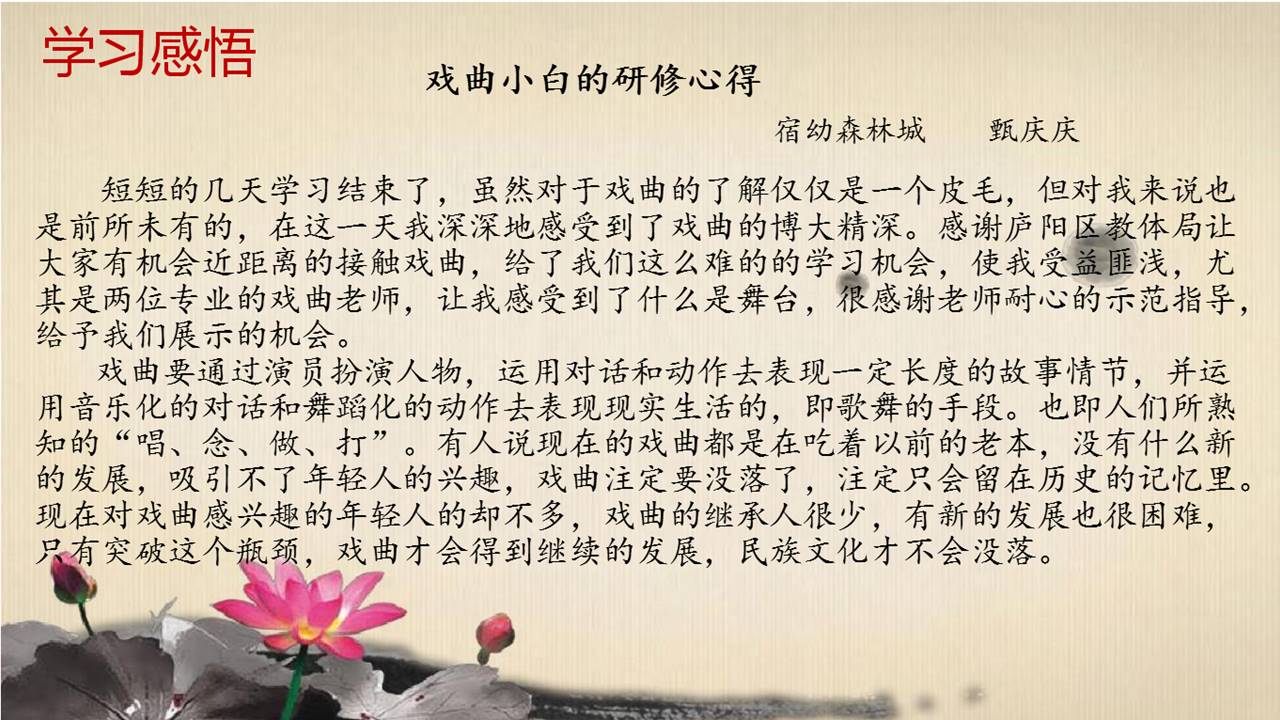 学习感悟
戏曲小白的研修心得
宿幼森林城 甄庆庆
短短的几天学习结束了，虽然对于戏曲的了解仅仅是一个皮毛，但对我来说也
是前所未有的，在这一天我深深地感受到了戏曲的博大精深。感谢庐阳区教体局让
大家有机会近距离的接触戏曲，给了我们这么难的的学习机会，使我受益匪浅，尤
其是两位专业的戏曲老师，让我感受到了什么是舞台，很感谢老师耐心的示范指导，
给予我们展示的机会。
戏曲要通过演员扮演人物，运用对话和动作去表现一定长度的故事情节，并运
用音乐化的对话和舞蹈化的动作去表现现实生活的，即歌舞的手段。也即人们所熟
知的“唱、念、做、打”。有人说现在的戏曲都是在吃着以前的老本，没有什么新
的发展，吸引不了年轻人的兴趣，戏曲注定要没落了，注定只会留在历史的记忆里。
现在对戏曲感兴趣的年轻人的却不多，戏曲的继承人很少，有新的发展也很困难，
只有突破这个瓶颈，戏曲才会得到继续的发展，民族文化才不会没落。